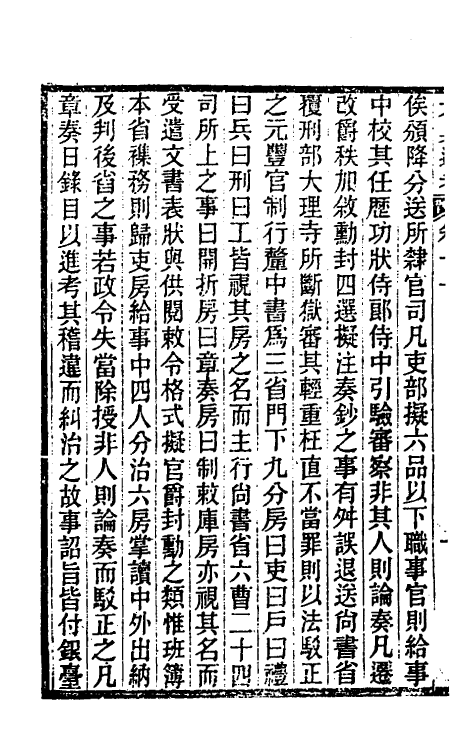 俟頒降分送所隸官司凡吏部擬六品以下職事官則給事
中校其任歷功狀侍郎侍中引驗審察非其人則論奏凡遷
改爵秩加敘勳封四選擬注奏鈔之事有舛誤退送尚書省
覆刑部大理寺所斷獄審其輕重枉直不當罪則以法駁正
之元豐官制行釐中書爲三省門下九分房曰吏曰戸曰禮
曰兵曰刑曰工皆視其房之名而主行尙書省六曹二十四
司所上之事曰開拆房曰章奏房曰制敕庫房亦視其名而
受遣文書表狀與供閱敕令格式擬官爵封勳之類惟班簿
本省襍務則歸吏房給事中四人分治六房掌讀中外出納
及判後省之事若政令失當除授非人則論奏而駁正之凡
章奏日錄目以進考其稽違而糾治之故事詔旨皆付銀臺